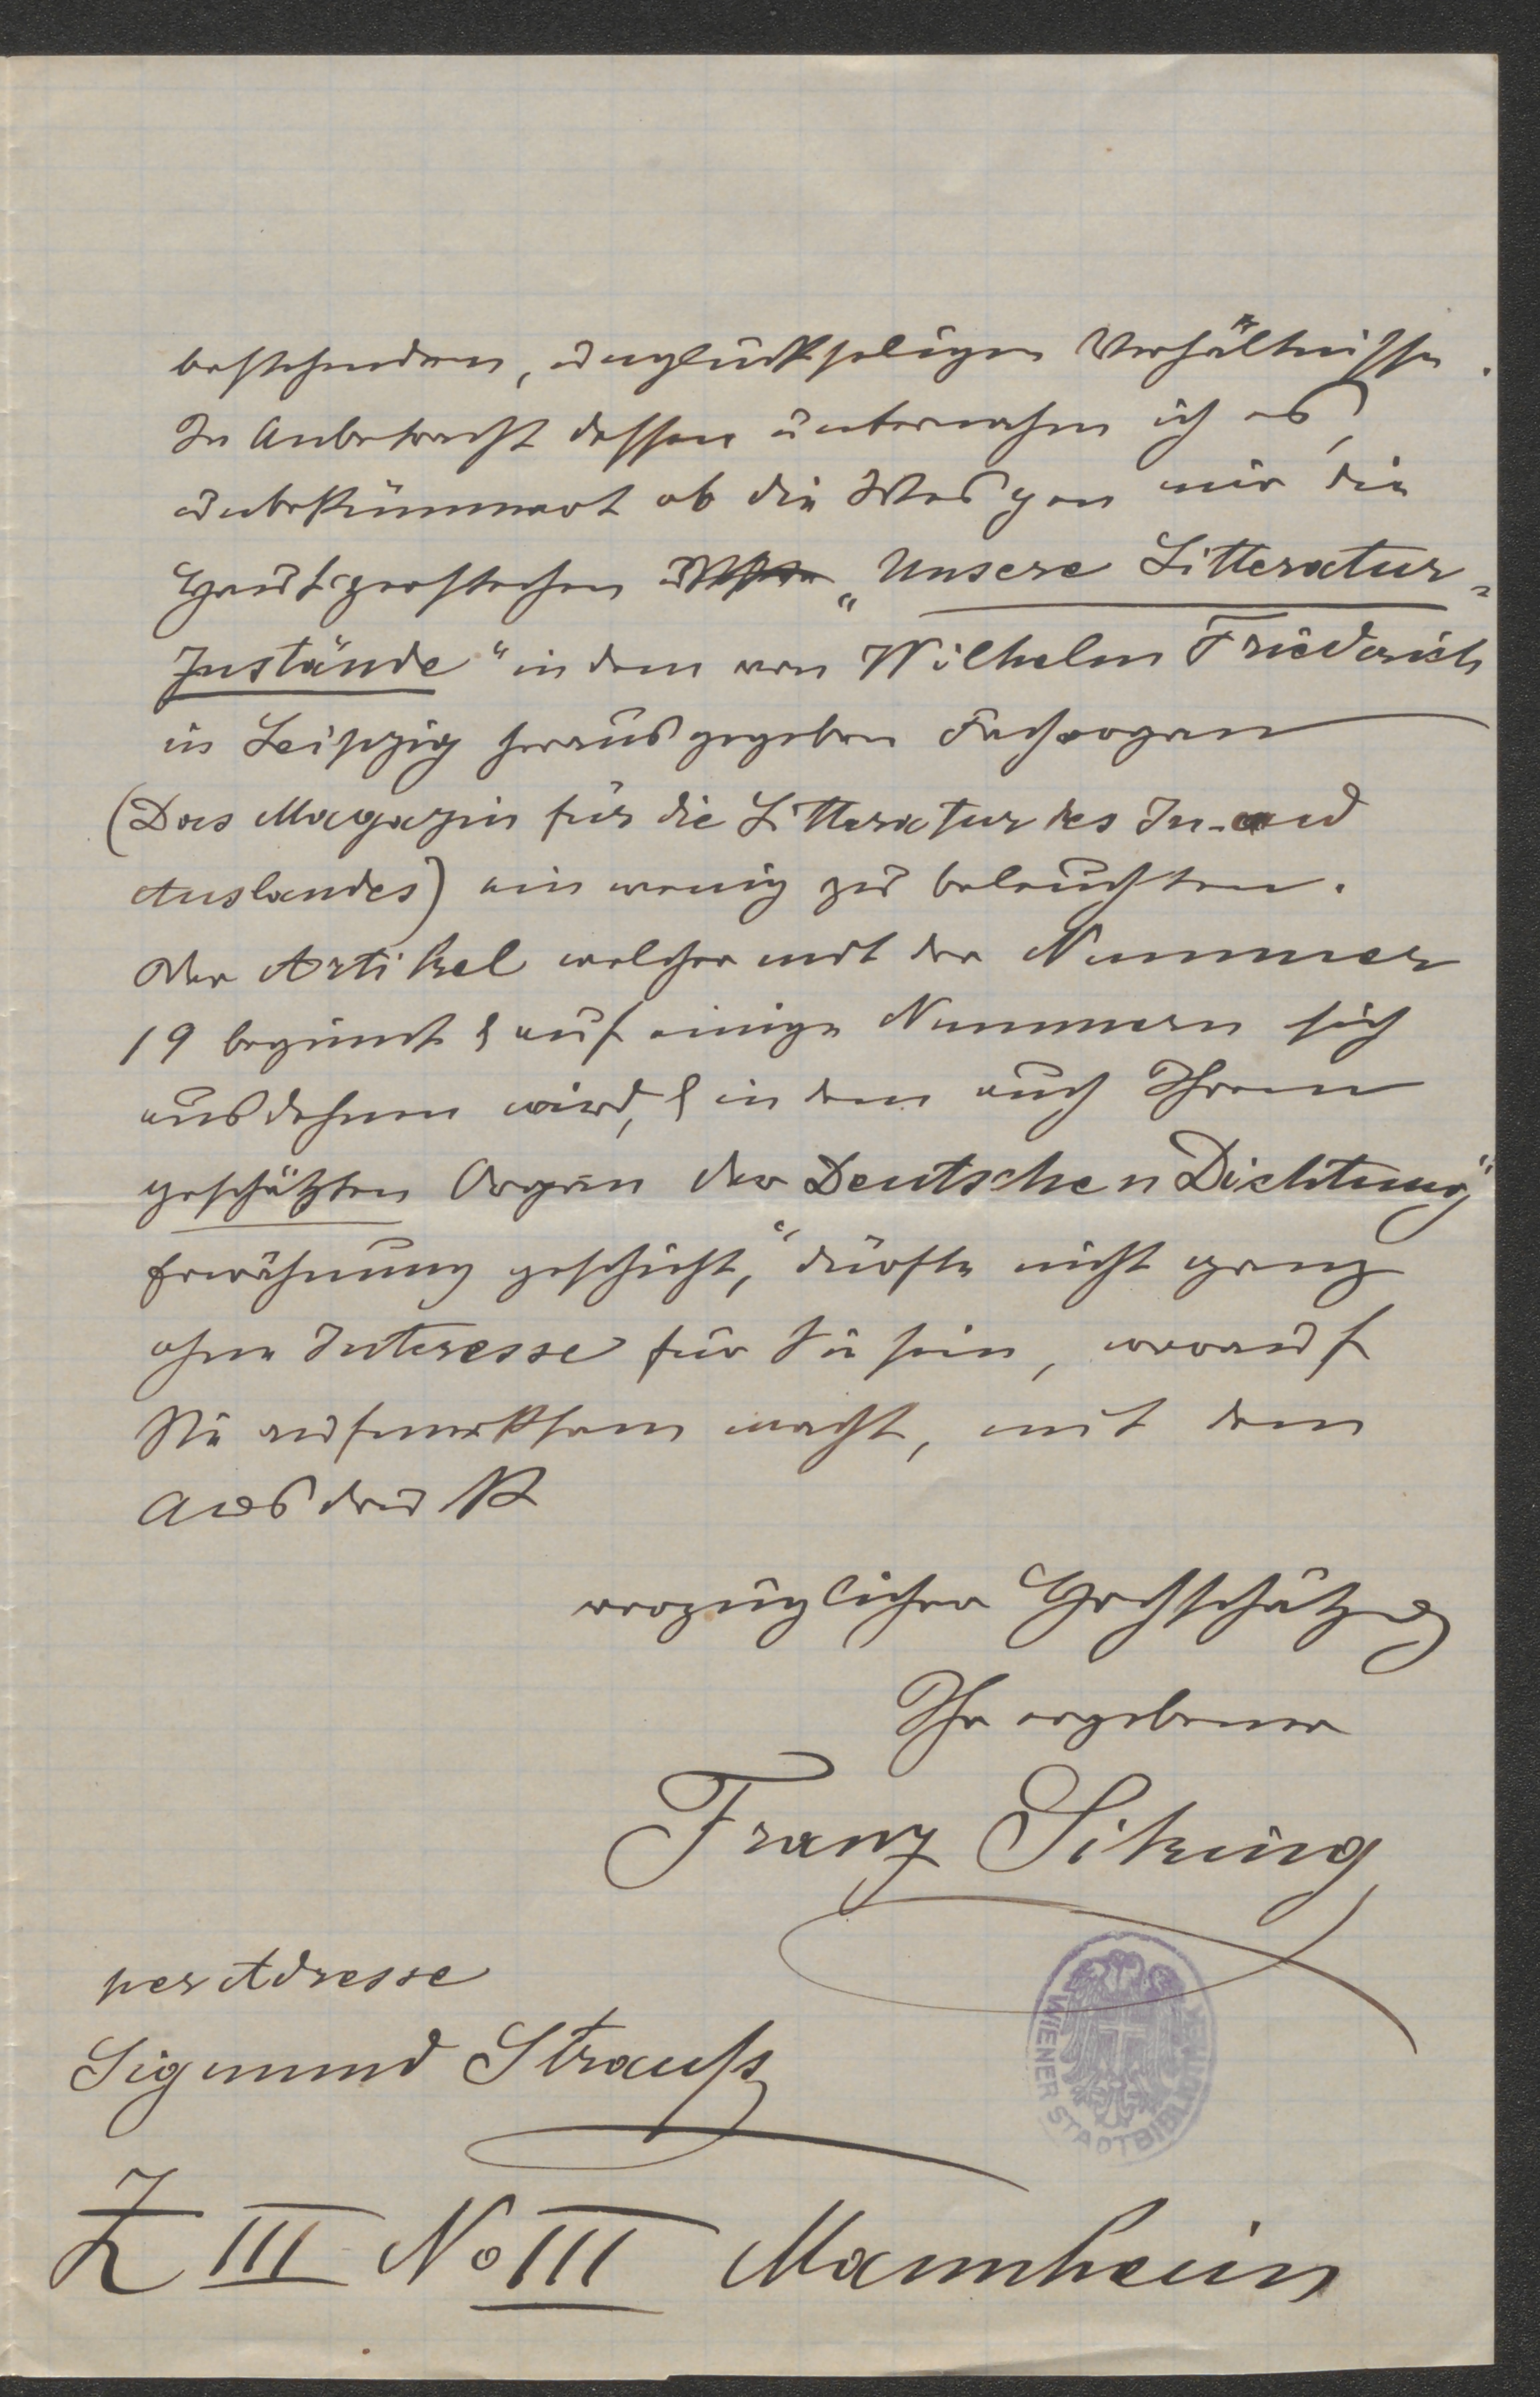 bestehenden, unglückseligen Verhältnisse.
In Anbetracht dessen unternahm ich es,
unbekümmert ob die Wespen mir die
Haut zerstechen „Unsere Litteratur-
Zustände" in dem von Wilhelm Friedrich
in Leipzig herausgegeben Fachorgan
(Das Magazin für die Litteratur des In- und
Auslandes) ein wenig zu beleuchten.
Der Artikel welcher mit der Nummer
19 beginnt & auf einige Nummern sich
ausdehnen wird, & in dem auch Ihrem
geschätzten Organ der „Deutschen Dichtung"
Erwähnung geschieht, dürfte nicht ganz
ohne Interesse für Sie sein, worauf
Sie aufmerksam macht, mit dem
Ausdruck
vorzüglicher Hochschätzg
Ihr ergebener
Franz Siking
per Adresse
Sigmund Strauß
Z III No III Mannheim
WIENER STADTBIBLIOTHEK